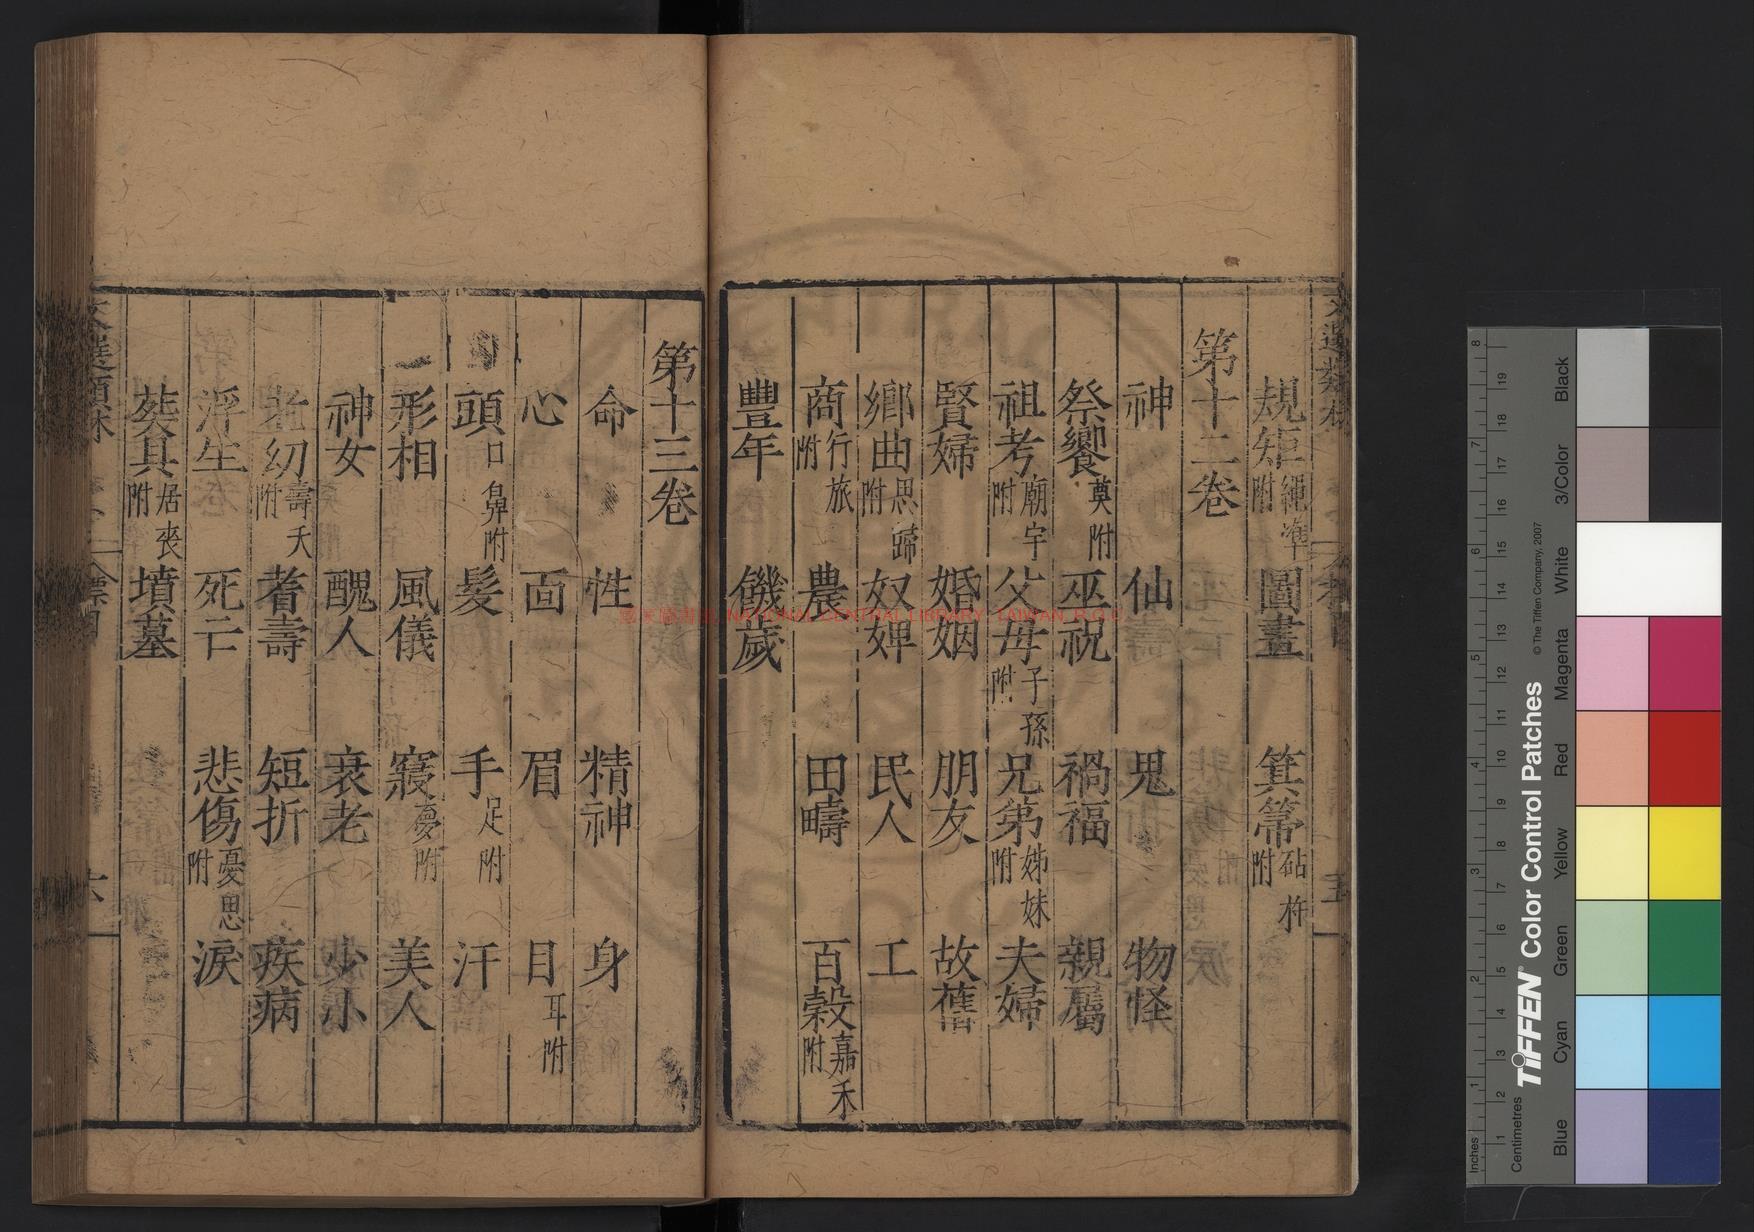 規矩繩準附 圖畫 箕箒砧杵附
第十二卷
神 仙 鬼 物怪
祭饗奠附 巫祝 禍福 親屬
祖考廟宇附 父母子孫附 兄弟姊妹附 夫婦
賢婦 婚姻 朋友 故舊
鄉曲思歸附 奴婢 民人 工
商行旅附 農 田疇 百穀嘉禾附
豐年 饑歲
第十三卷
命 性 精神 身
心 面 眉 目耳附
頭口鼻附 髮 手足附 汗
形相 風儀 寢夢附 美人
神女 醜人 衰老 少小
老幼壽夭附 耆壽 短折 疾病
浮生 死亡 悲傷憂思附 淚
葬具居喪附 墳墓
NATIONAL CENTRAL LIBRARY, TAIWAN, R.O.C
Inches
Centimetres
TIFFEN® Color Control Patches
© The Tiffen Company, 2007
Blue
Cyan
Green
Yellow
Red
Magenta
White
3/Color
Black